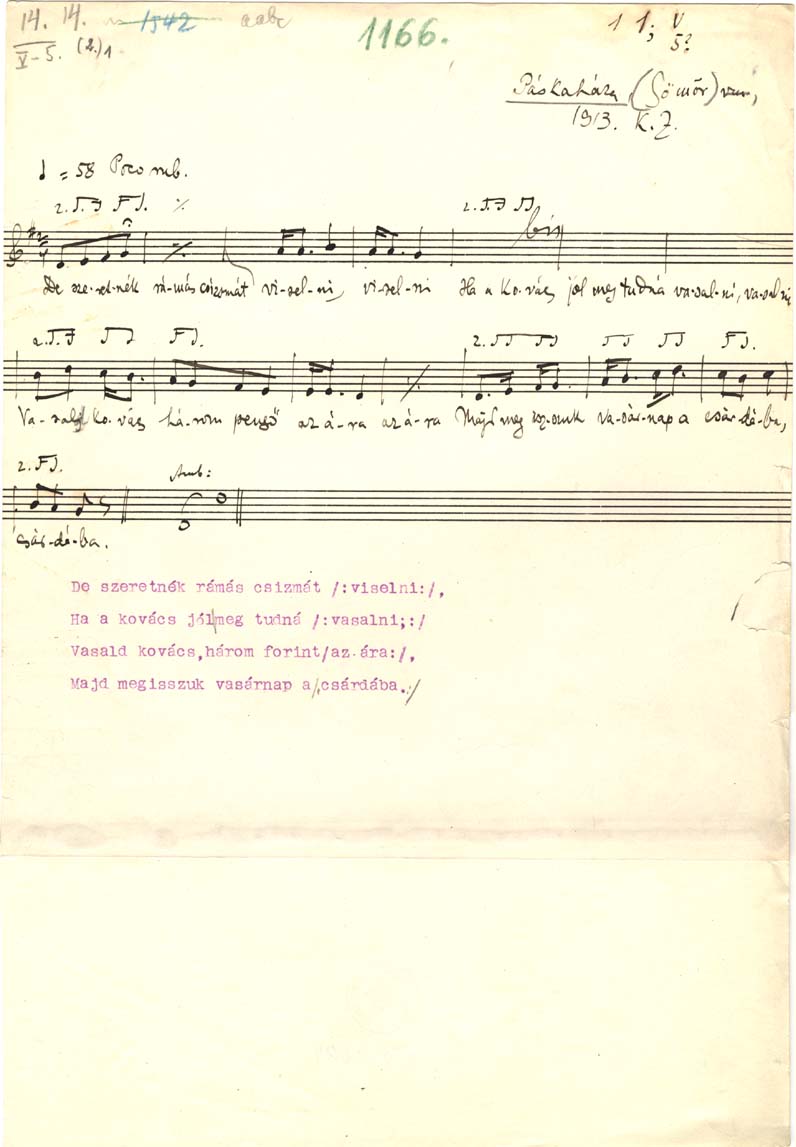 14. 14. 1542 aabc 1166. 1 1; V
V-5. (2.) 1 5?
Páskaháza, (Gömör) vm,
1913. K. Z.
= 58 Poco rub.
2. 2.
bis
De sze-ret-nék rá-más csizmát vi-sel-ni, vi-sel-ni Ha a ko-vács jól meg tudná va-sal-ni, va-sal-ni,
2. 2.
Va-sald ko-vács há-rom pengő az á-ra az á-ra Majd meg isz-szuk va-sár-nap a csár-dá-ba,
2. Amb:
csár-dá-ba.
De szeretnék rámás csizmát /:viselni:/,
Ha a kovács jól|meg tudná /:vasalni;:/
Vasald kovács,három forint/az ára:/,
Majd megisszuk vasárnap a/:csárdába.:/